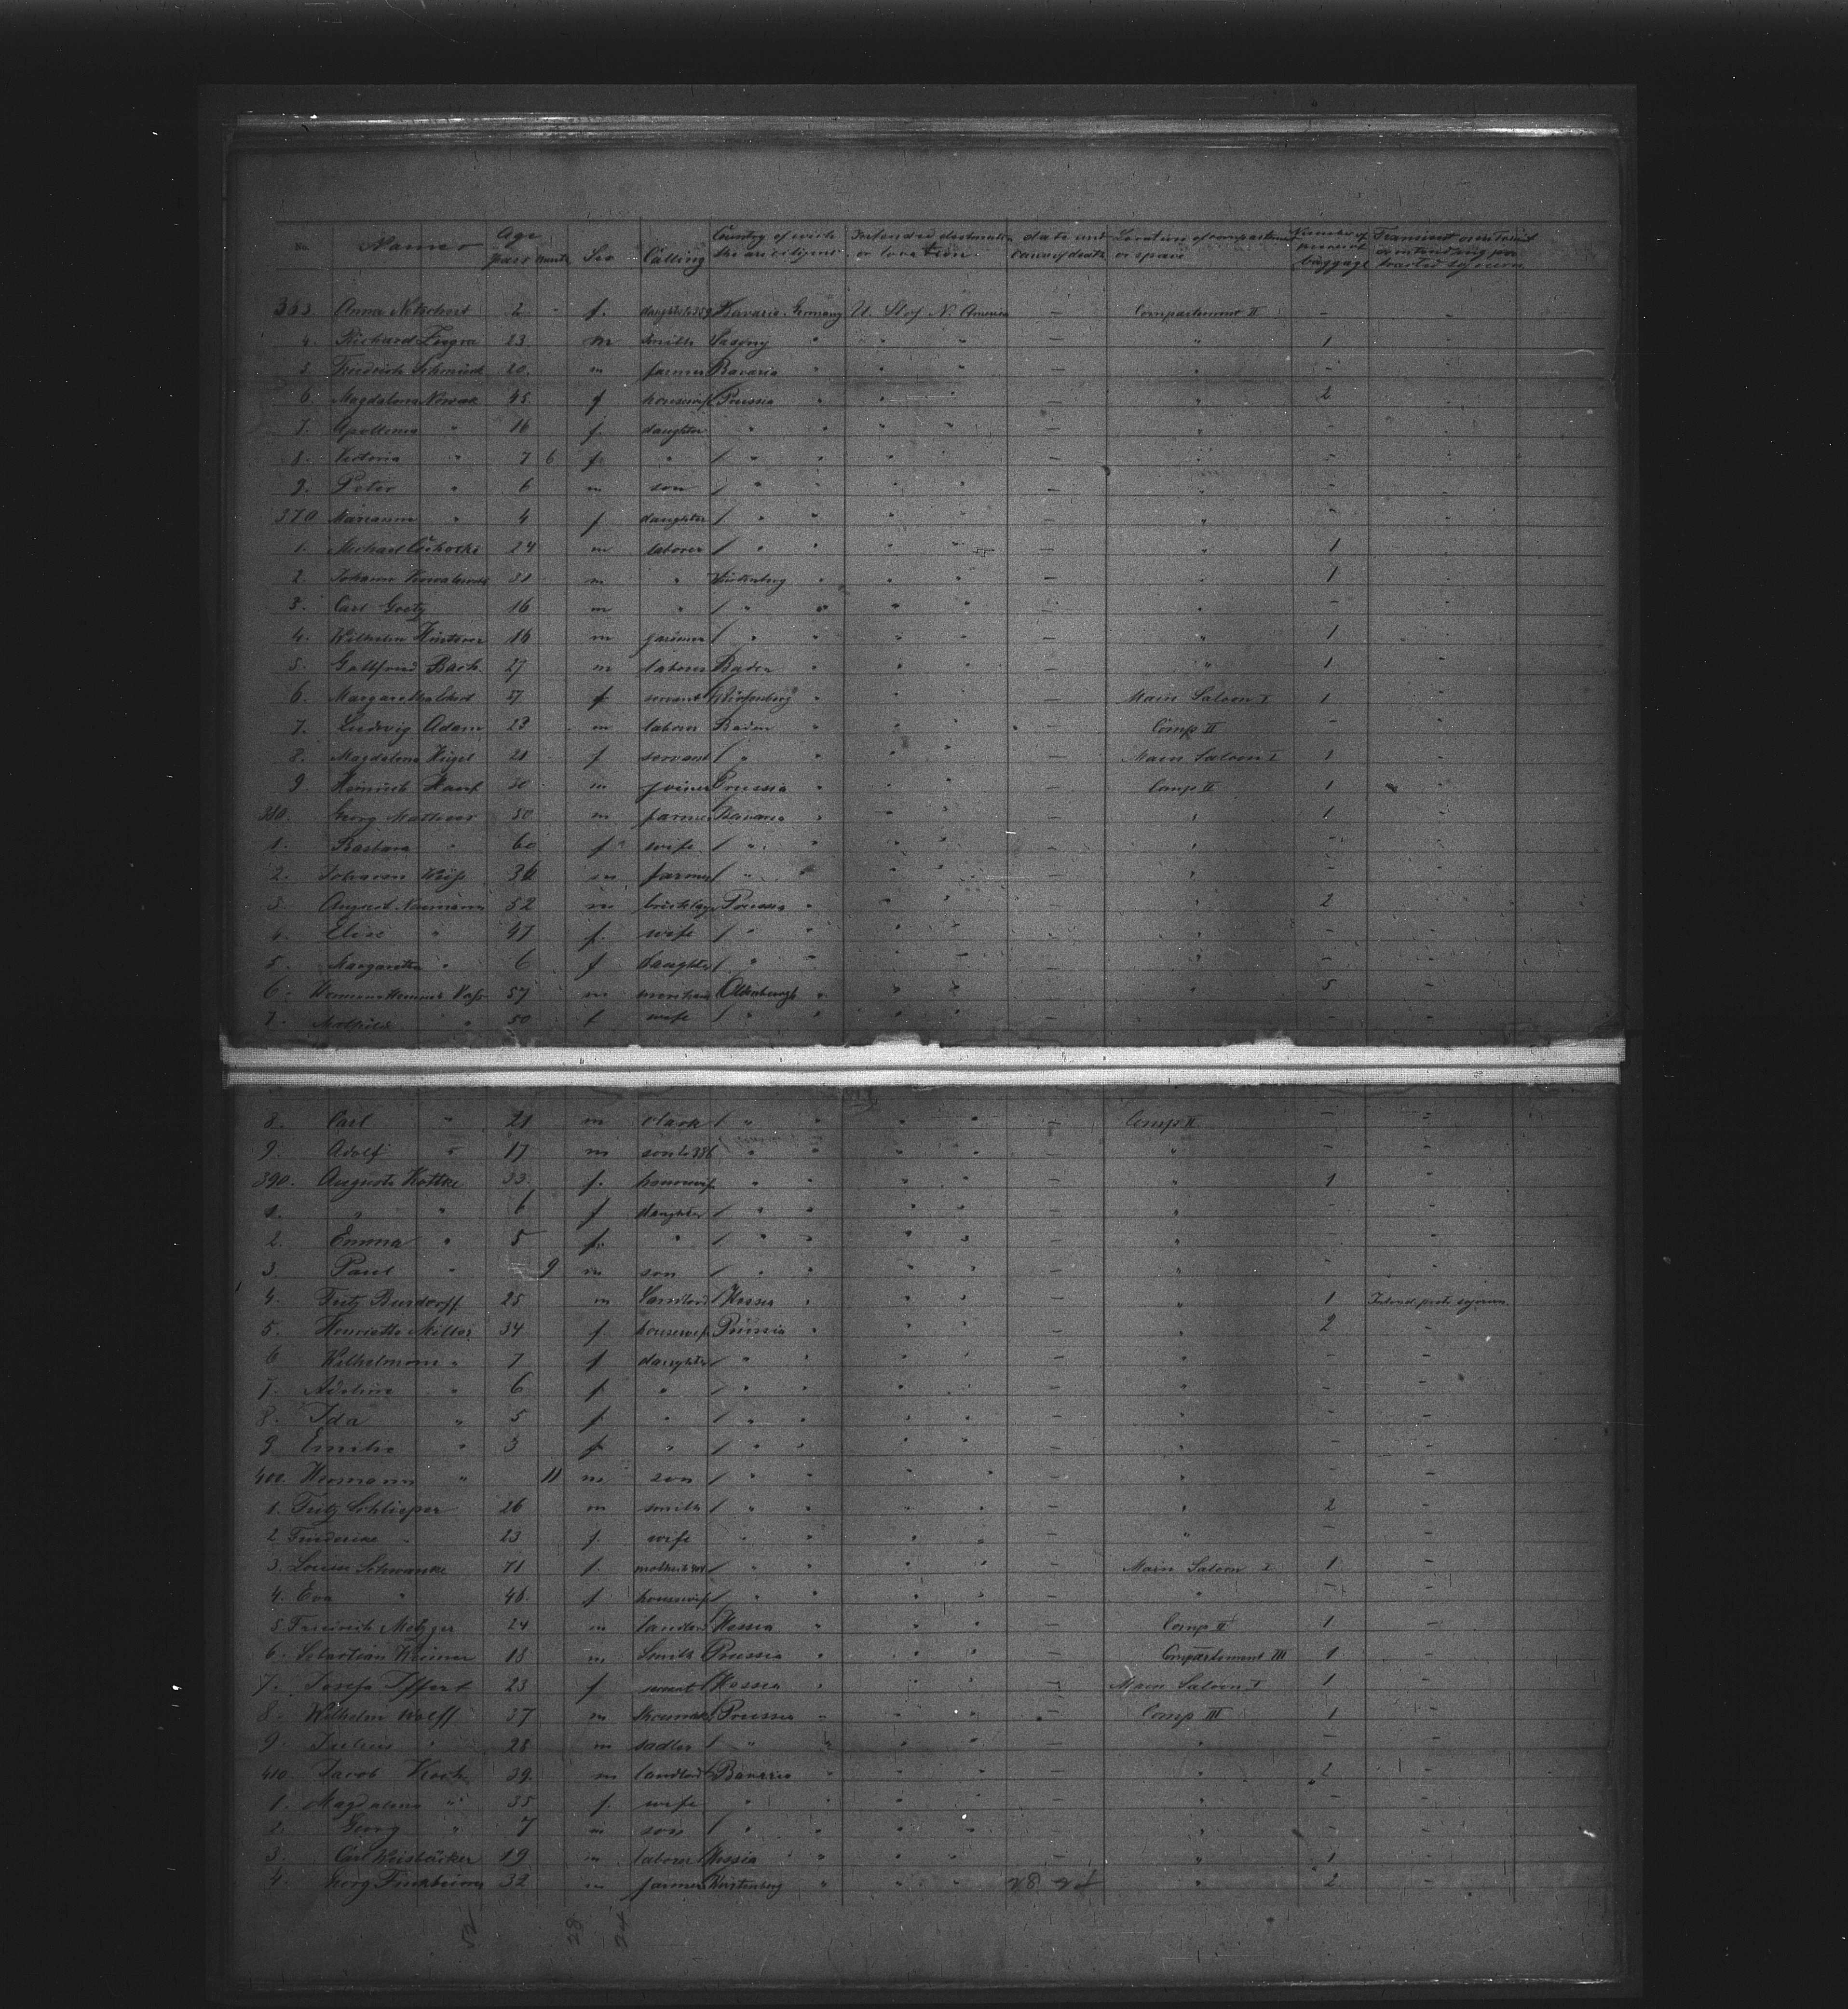 No. Names Age years months Sex Calling Country of wich the are citizens Intended destination or location date and cause of death Location of compartment or space Number of pieces of baggage Transient or in transit or intending protracted sojourn
363 Anna Netschert 2 - f. daught to 359 Bavaria Germany U. St of N. America — Compartment II - -
4. Richard 23 m smith Saxony " " " — " 1 -
5. Friedrich Schmidt 20. m farmer Bavaria " " " — " - -
6. Magdalena Nowak 45 f housewife Prussia " " " — " 2 -
7. Apollonia " 16 f. daughter " " " " — " - -
8. Victoria " 7 6 f. " " " " " — " - -
9. Peter " 6 m son " " " " — " - -
370 Marianna " 4 f daughter " " " " — " - -
1. Michael 24 m laborer " " " " — " 1 -
2. Johann 31 m " Würtenberg " " " — " 1 -
3. Carl Goetz 16 m " " " " " — " - -
4. Wilhelm 16 m farmer " " " " — " 1 -
5. Gottfried Bach. 27 m laborer Baden " " " — " 1 -
6. Margaretha 57 f servant Würtenberg " " — Main Saloon I 1 -
7. Ludwig Adam 23 m laborer Baden " " " Comp II -
8. Magdalena Kugel 21 f servant " " " " — Main Saloon I 1 -
9. Heinrich 30 m joiner Prussia " " " — Comp II 1 "
380. Georg 50 m farmer Bavaria " " " " 1 -
1. Barbara " 60 f wife " " " " — " - -
2. Johann 36 m farmer " " " " — " - -
3. August Naumann 52 m bricklayer Prussia " " " — " 2 -
4. Elise " 47 f. wife " " " " — " - -
5. Margaretha " 6 f daughter " " " " — " - -
6. Hermann Heinrich 57 m Oldenburgh " " " — " 5 -
7. Mathilde " 50 f wife " " " " — - -
8. Carl " 21 m clark " " " " — Comp II - -
9. Adolf " 17 m son to 386 " " " " — " - -
390. Auguste Kottke 33. f. housewife " " " " — " 1 -
1. " " 6 f daughter " " " " — " - -
2. Emma " 5 f. " " " " " — " - -
3. Paul " 9 m son " " " " — " - -
4. Fritz Burdorff 25 m Landlord Hessia " " " — " 1
5. Henriette Miller 34 f. housewife Prussia " " " — " 2 -
6 Wilhelmine " 7 f daughter " " " " — " - -
7. Adeline " 6 f " " " " " — " - -
8. Ida " 5 f " " " " " — " - -
9 Emilie " 3 f " " " " " — " - -
400. Hermann " 11 m son " " " " — " - -
1. Fritz Schlieper 26 m smith " " " " — " 2 -
2 Friederike " 23 f. wife " " " " — " - -
3. Louise Schwanke 71 f. mother to 404 " " " " — Main Saloon I 1 -
4. Eva " 46 f housewife " " " " — " -
5 Friedrich Metzger 24 m landlord Hessia " " " — Comp II 1 -
6. Sebastian 18 m Smith Prussia " " " — Compartement III 1 -
7. Josefa Iffert 23 f servant Hessia " " " — Main Saloon I 1 -
8. Wilhelm Wolff 37 m Prussia " " " Comp III 1 -
9. Julius " 28 m sadler " " " " — " - -
410 Jacob Koch 39. m landlord Bavaria " " " — " 2 -
1. Magdalena " 35 f. wife " " " " — " - -
2. Georg " 7 m son " " " " — " - -
3. Carl Weisbäcker 19 m laborer Hessia " " " — " 1 -
4. Georg Finkbeiner 32 m farmer Würtenberg " " " " 2 -